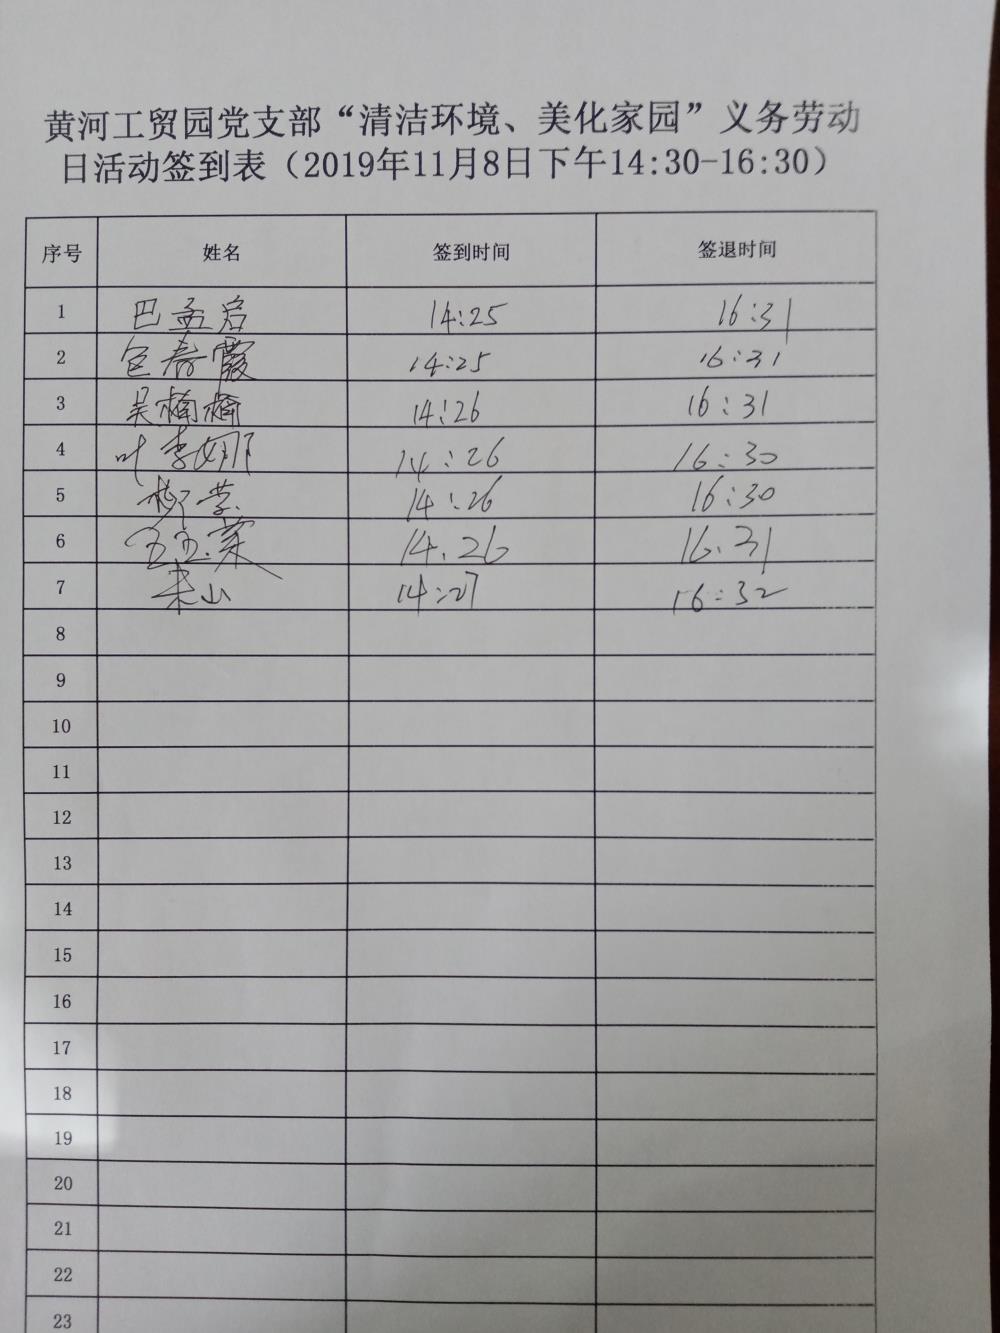 黄河工贸园党支部“清洁环境、美化家园”义务劳动
日活动签到表（2019年11月8日下午14:30-16:30）
序号 姓名 签到时间 签退时间
1 巴孟启 14:25 16:31
2 包春霞 14:25 16:31
3 吴楠楠 14:26 16:31
4 叶李娜 14:26 16:30
5 14:26 16:30
6 14.26 16.31
7 朱山 14:27 16:32
8
9
10
11
12
13
14
15
16
17
18
19
20
21
22
23